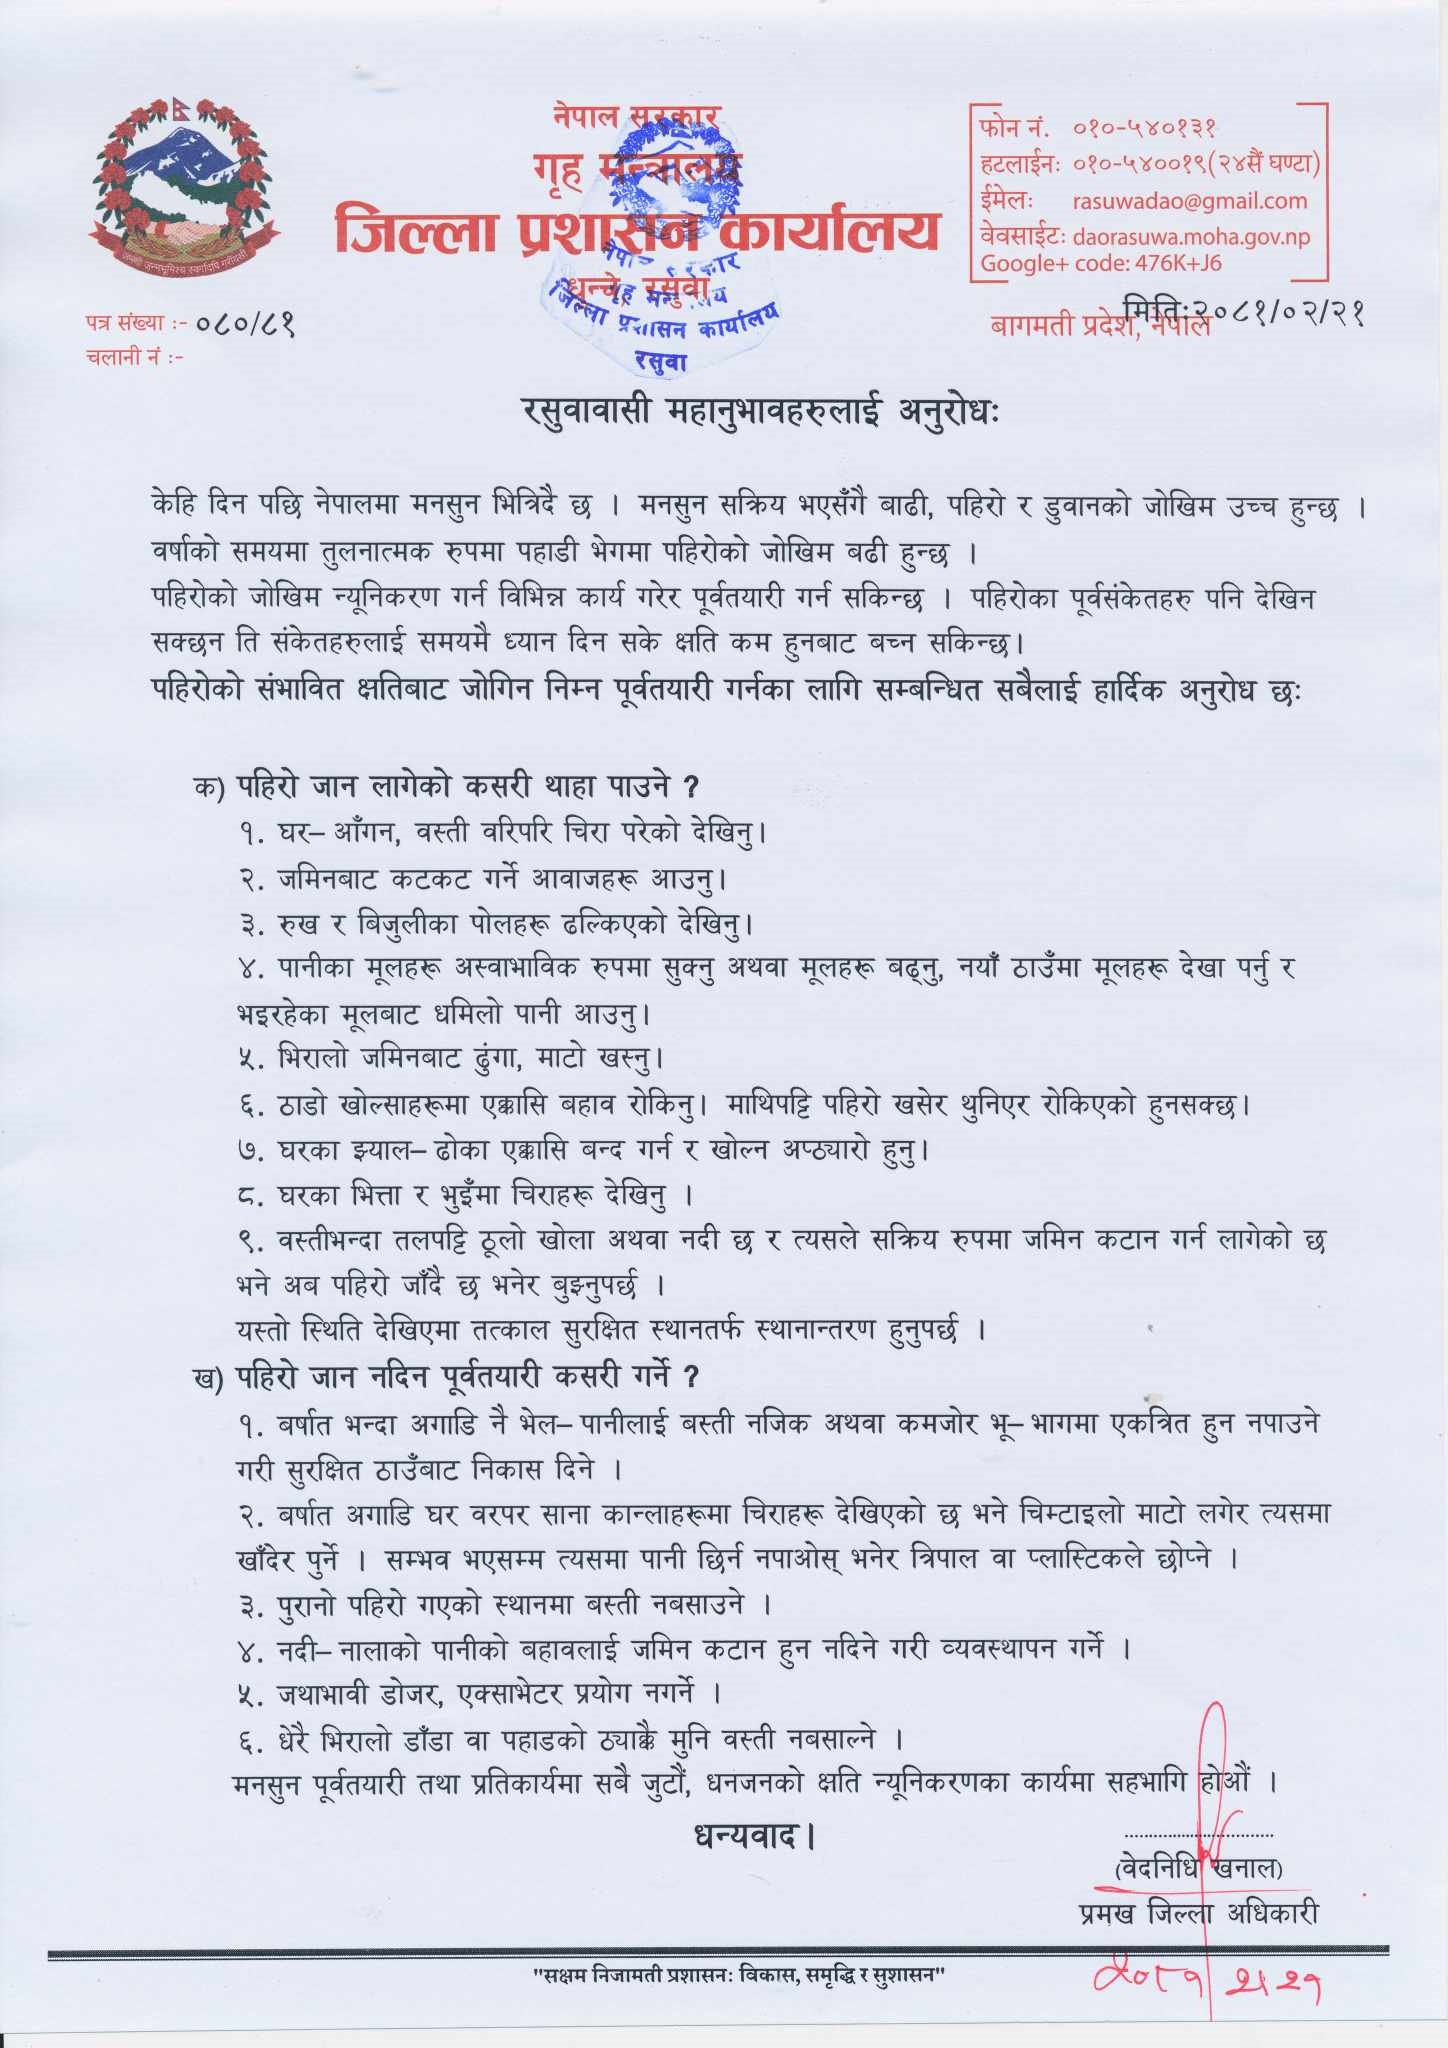 नेपाल सरकार
गृह मन्त्रालय
जिल्ला प्रशासन कार्यालय
धुन्चे, रसुवा
फोन नं. ०१०-५४०१३१
हटलाईनः ०१०-५४००१९(२४सैं घण्टा)
ईमेलः rasuwadao@gmail.com
वेवसाईटः daorasuwa.moha.gov.np
Google+ code: 476K+J6
नेपाल सरकार
गृह मन्त्रालय
जिल्ला प्रशासन कार्यालय
रसुवा
पत्र संख्या :- ०८०/८१
चलानी नं :-
बागमती प्रदेश, नेपाल
मितिः२०८१/०२/२१
रसुवावासी महानुभावहरुलाई अनुरोधः
केहि दिन पछि नेपालमा मनसुन भित्रिदै छ । मनसुन सक्रिय भएसँगै बाढी, पहिरो र डुवानको जोखिम उच्च हुन्छ ।
वर्षाको समयमा तुलनात्मक रुपमा पहाडी भेगमा पहिरोको जोखिम बढी हुन्छ ।
पहिरोको जोखिम न्यूनिकरण गर्न विभिन्न कार्य गरेर पूर्वतयारी गर्न सकिन्छ । पहिरोका पूर्वसंकेतहरु पनि देखिन
सक्छन ति संकेतहरुलाई समयमै ध्यान दिन सके क्षति कम हुनबाट बच्न सकिन्छ।
पहिरोको संभावित क्षतिबाट जोगिन निम्न पूर्वतयारी गर्नका लागि सम्बन्धित सबैलाई हार्दिक अनुरोध छः
क) पहिरो जान लागेको कसरी थाहा पाउने ?
१. घर– आँगन, वस्ती वरिपरि चिरा परेको देखिनु।
२. जमिनबाट कटकट गर्ने आवाजहरू आउनु।
३. रुख र बिजुलीका पोलहरू ढल्किएको देखिनु।
४. पानीका मूलहरू अस्वाभाविक रुपमा सुक्नु अथवा मूलहरू बढ्नु, नयाँ ठाउँमा मूलहरू देखा पर्नु र
भइरहेका मूलबाट धमिलो पानी आउनु।
५. भिरालो जमिनबाट ढुंगा, माटो खस्नु।
६. ठाडो खोल्साहरूमा एक्कासि बहाव रोकिनु। माथिपट्टि पहिरो खसेर थुनिएर रोकिएको हुनसक्छ।
७. घरका झ्याल– ढोका एक्कासि बन्द गर्न र खोल्न अप्ठ्यारो हुनु।
८. घरका भित्ता र भुइँमा चिराहरू देखिनु ।
९. वस्तीभन्दा तलपट्टि ठूलो खोला अथवा नदी छ र त्यसले सक्रिय रुपमा जमिन कटान गर्न लागेको छ
भने अब पहिरो जाँदै छ भनेर बुझ्नुपर्छ ।
यस्तो स्थिति देखिएमा तत्काल सुरक्षित स्थानतर्फ स्थानान्तरण हुनुपर्छ ।
ख) पहिरो जान नदिन पूर्वतयारी कसरी गर्ने ?
१. बर्षात भन्दा अगाडि नै भेल– पानीलाई बस्ती नजिक अथवा कमजोर भू– भागमा एकत्रित हुन नपाउने
गरी सुरक्षित ठाउँबाट निकास दिने ।
२. बर्षात अगाडि घर वरपर साना कान्लाहरूमा चिराहरू देखिएको छ भने चिम्टाइलो माटो लगेर त्यसमा
खाँदेर पुर्ने । सम्भव भएसम्म त्यसमा पानी छिर्न नपाओस् भनेर त्रिपाल वा प्लास्टिकले छोप्ने ।
३. पुरानो पहिरो गएको स्थानमा बस्ती नबसाउने ।
४. नदी– नालाको पानीको बहावलाई जमिन कटान हुन नदिने गरी व्यवस्थापन गर्ने ।
५. जथाभावी डोजर, एक्साभेटर प्रयोग नगर्ने ।
६. धेरै भिरालो डाँडा वा पहाडको ठ्याक्कै मुनि वस्ती नबसाल्ने ।
मनसुन पूर्वतयारी तथा प्रतिकार्यमा सबै जुटौं, धनजनको क्षति न्यूनिकरणका कार्यमा सहभागि होऔं ।
धन्यवाद।
(वेदनिधि खनाल)
प्रमख जिल्ला अधिकारी
"सक्षम निजामती प्रशासनः विकास, समृद्धि र सुशासन"
२०८१/२/२१